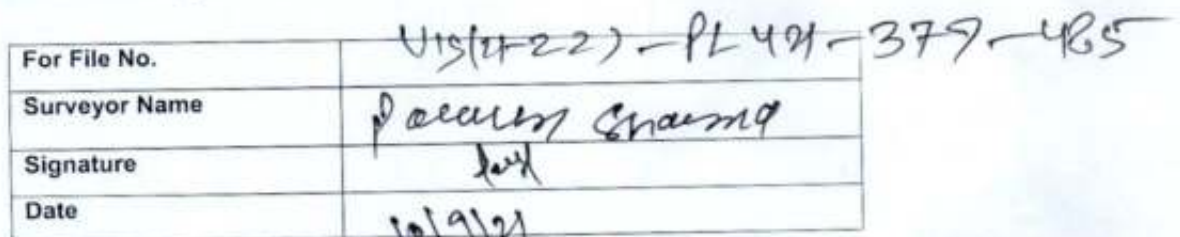 For File No. VIS(21-22)-PL421-377-485
Surveyor Name Sharma
Signature
Date 10/9/21